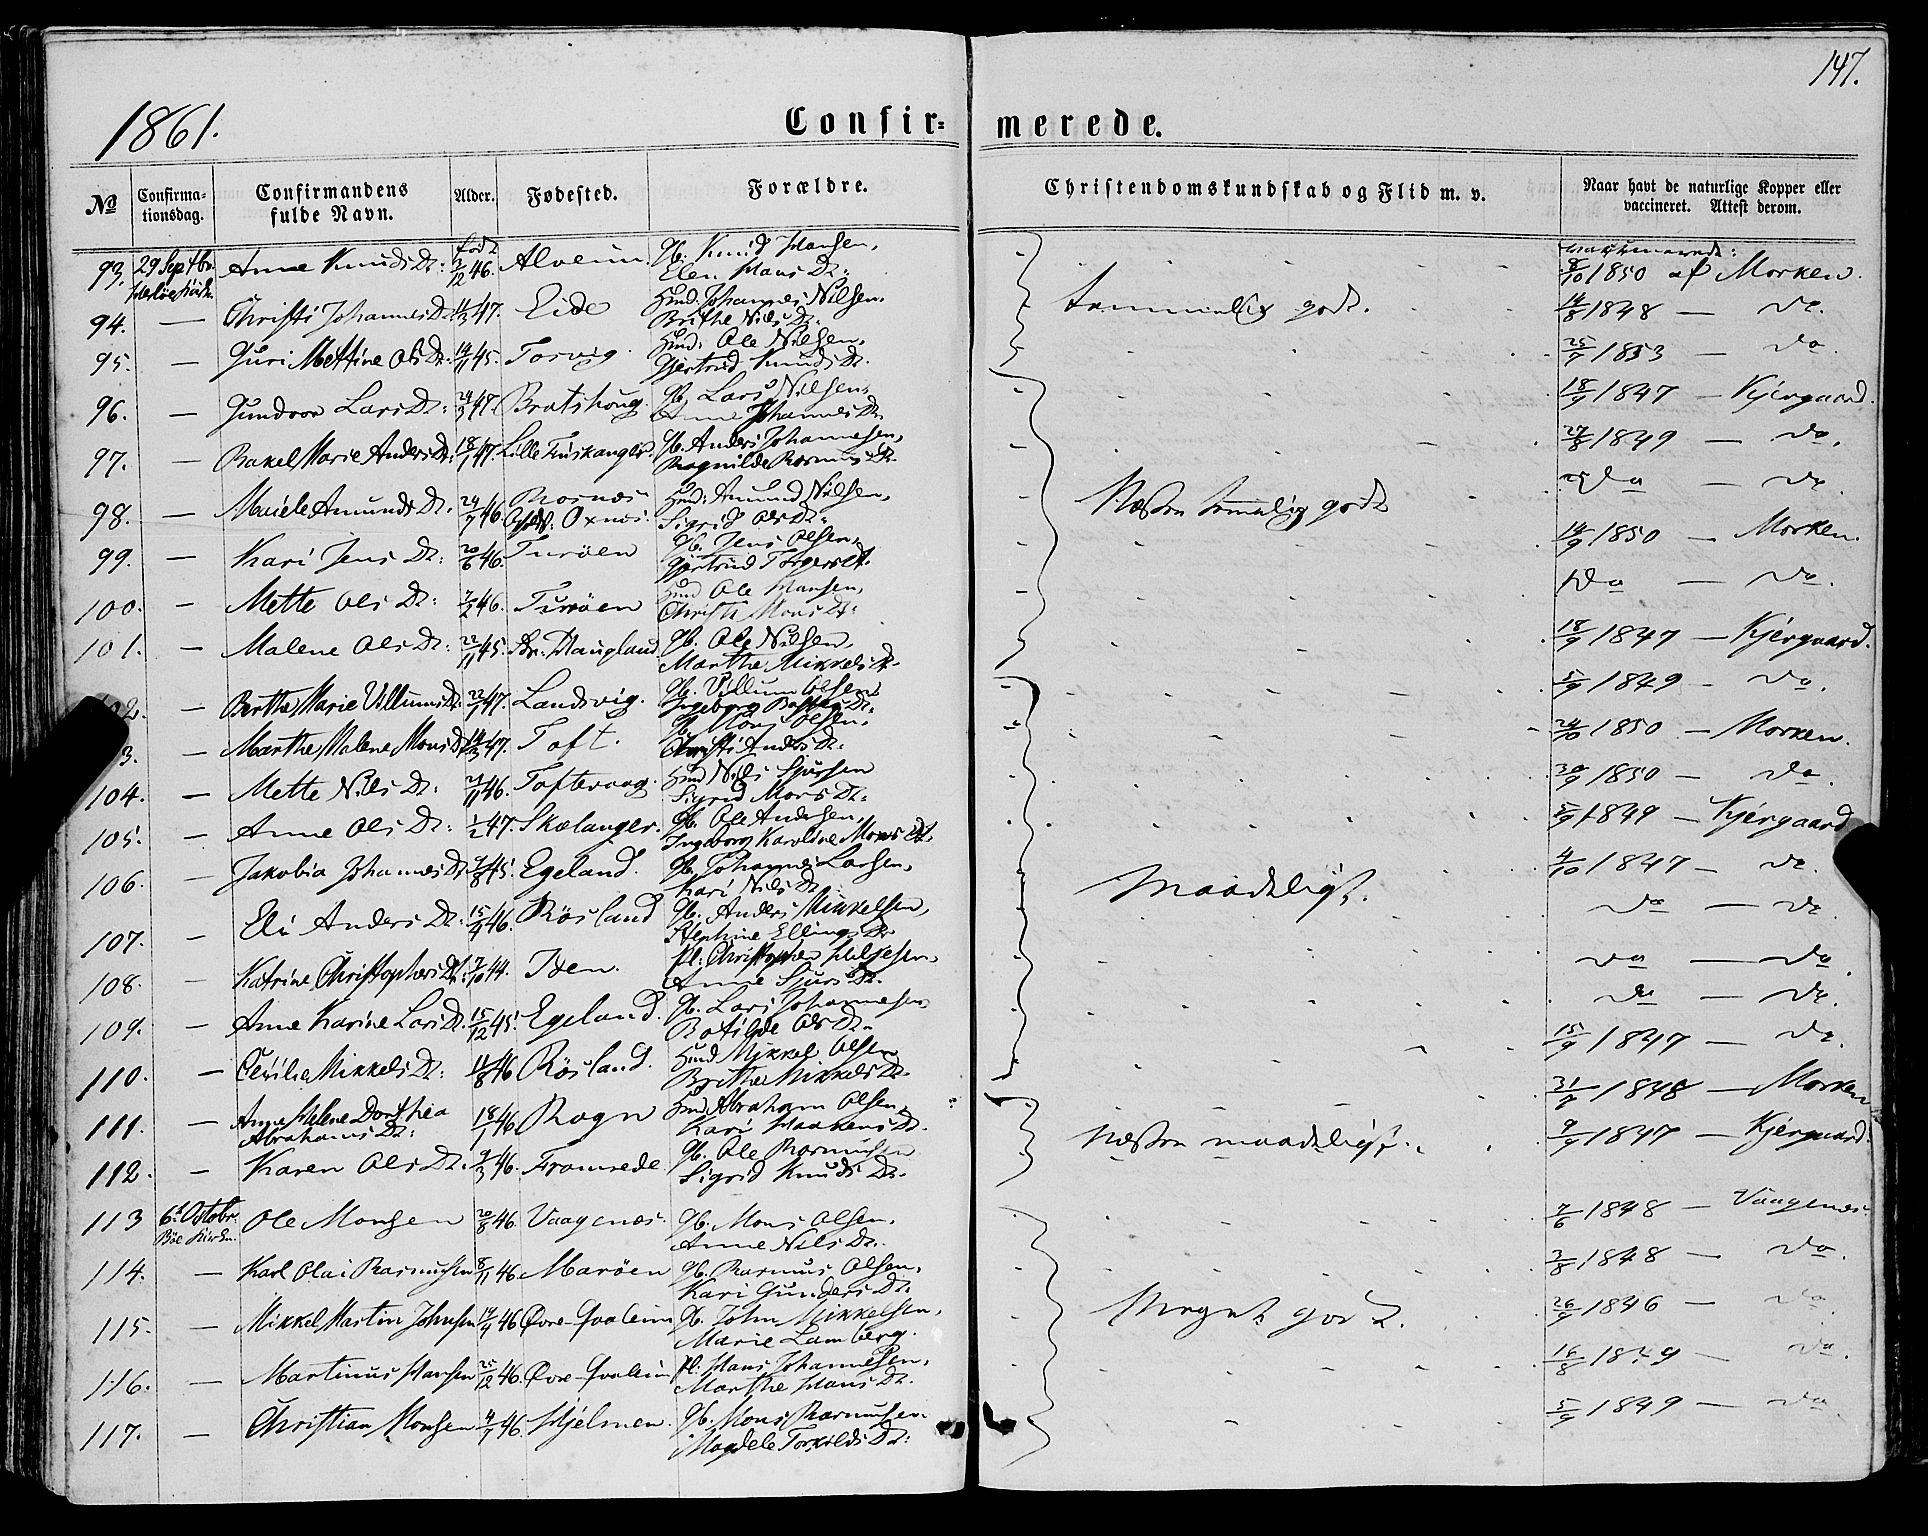 147.
1861.
Confir- merede.
No Confirmationsdag. Confirmandens fulde Navn. Alder. Fødested. Forældre. Christendomskundskab og Flid m. v. Naar havt de naturlige Kopper eller vaccineret. Attest derom.
93. 29 Septbr. Anne Knuds Dr: født 3/12 46. Alveim Gb. Knud Hansen, Elen Hans Dr: 8/10 1850 af Morken.
94. — Christi Johannes Dr. 11/3 47. Eide Huusd. Johannes Nilsen, Brithe Nils Dr. temmelig godt. 14/8 1848 — do.
95. — Guri Mettine Ols Dr. 14/11 45. Torvig. Huusd. Ole Nilsen, Gjertrud Knuds Dr. 25/9 1853 — do.
96. — Gundvor Lars Dr: 47. Bratshoug. Gb. Lars Nilsen, Anne Johannes Dr. 18/9 1847 — Kjergaard.
97. — Rakel Marie Anders Dr: 18/1 47. Lille Gb. Anders Johannesen, Ragnilde Rasmus Dr. 27/8 1849 — do.
98. — Amunds Dr. 46. Oxnes. Huusd: Amund Nilsen, Sigrid Ols Dr: Næsten temmelig godt do — do.
99. — Kari Jens Dr: 20/6 46. Turöen Gb. Jens Olsen, Gjertrud 14/9 1850 — Morken.
100. — Mette Ols Dr: 7/2 46. Turöen Huusd Ole Hansen, Christi Mons Dr: do — do.
101. — Malene Ols Dr: 22/11 45. Haugland. Gb. Ole Nilsen, Marthe Mikkels Dr. 18/9 1847 — Kjergaard.
102. — Berthe Marie Villums Dr: 22/1 47. Landsvig. Gb. Villum Olsen, Ingeborg Dr: 5/9 1849 — do.
3. — Marthe Malene Mons Dr. 14/3 47. Toft. Gb. Mons Olsen, Christi Anders Dr: 24/10 1850 — Morken.
104. — Mette Nils Dr: 46. Toftevaag. Huusd Nils Sjursen Sigrid Mons Dr: 30/9 1850 — do.
105. — Anne Ols Dr: 1/2 47. Skælanger. Gb. Ole Andersen, Ingeborg Karoline Mons Dr. 5/9 1849 — Kjergaard
106. — Jakobia Johannes Dr 7/8 45. Egeland. Gb. Johannes Larsen, Kari Nils Dr. Maadeligt. 4/10 1847 — do.
107. — Eli Anders Dr: 15/9 46. Rösland Gb. Anders Mikkelsen, Stephine Ellings Dr do — do.
108. — Katrine Christophers Dr: 7/10 44. Iden. Pl. Christopher Helgesen, Anne Sjurs Dr. do — do.
109. — Anne Karine Lars Dr. 15/12 45. Egeland. Gb. Lars Johannesen, Botilde Ols Dr. do — do.
110. — Cecilie Mikkels Dr: 11/8 46 Rösland. Huusd Mikkel Olsen Brithe Mikkels Dr. 15/9 1847 — do.
111. — Anne Helene Dorthea Abrahams Dr: 18/1 46 Rogn Huusd Abraham Olsen, Kari Haakens Dr. 31/7 1848 — Morken
112. — Karen Ols Dr. 9/3 46. Fromrede Gb. Ole Rasmusen Sigrid Knuds Dr. Næsten maadeligt. 9/9 1847 — Kjergaard.
113 6te Octobr. Böe Kirke. Ole Monsen 20/8 46. Vaagenes. Gb. Mons Olsen, Anne Nils Dr. 7/6 1848 — Vaagenes.
114. — Karl Olai Rasmusen 8/11 46. Maröen Gb. Rasmus Olsen, Kari Gunders Dr. 3/8 1848 — do.
115. — Mikkel Martin Johnsen 14/4 46 Øvre Qvaleim Gb. John Mikkelsen, Marie Lamberg. Meget godt. 26/9 1846 — do.
116. — Martinus Hansen 25/12 46. Øvre Qvaleim Pl. Hans Johannesen, Marthe Hans Dr. 16/8 1849 — do.
117. — Christian Monsen 4/7 46 Hjelmen. Gb. Mons Rasmusen Magdele Torkilds Dr: 5/9 1849 — do.